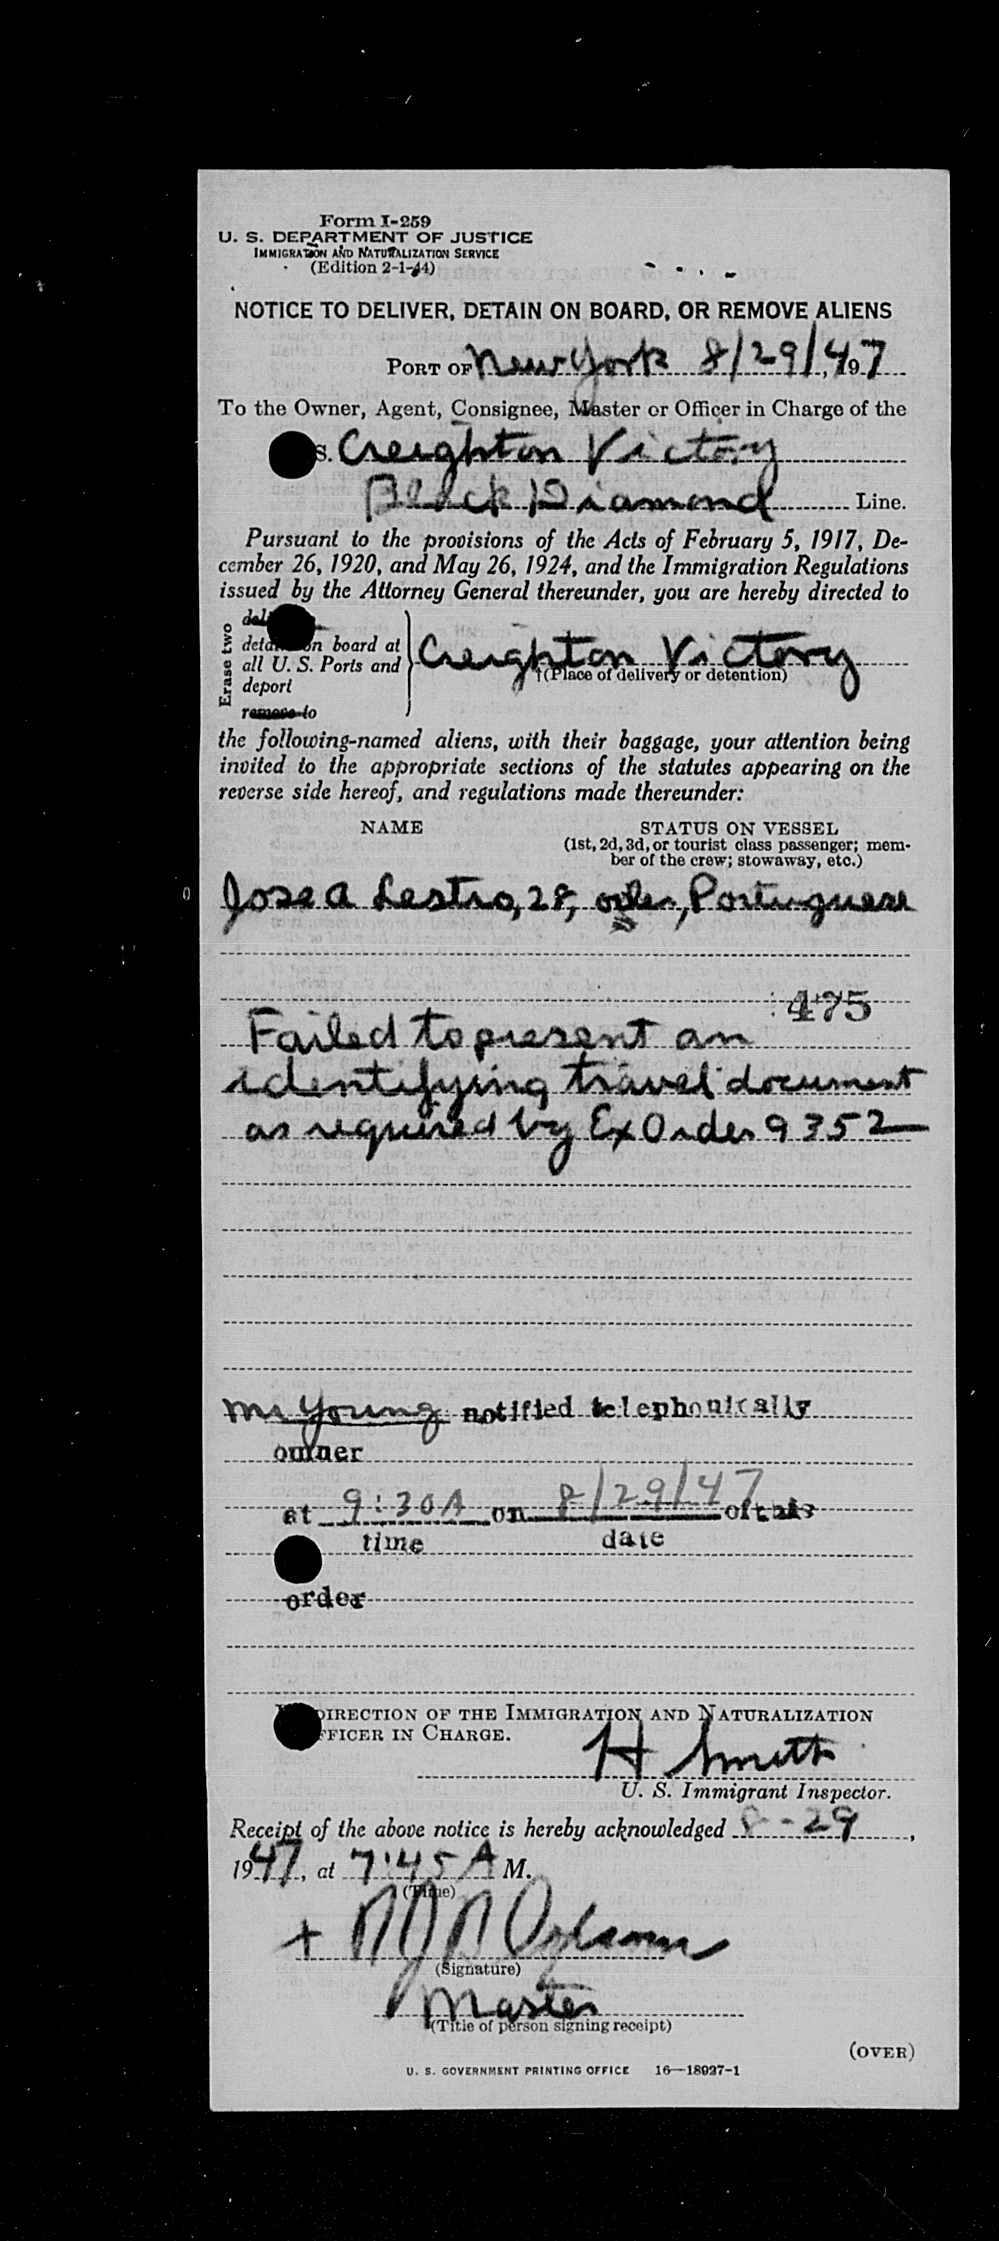 Form I-259
U. S. DEPARTMENT OF JUSTICE
IMMIGRATION AND NATURALIZATION SERVICE
(Edition 2-1-44)
NOTICE TO DELIVER, DETAIN ON BOARD, OR REMOVE ALIENS
PORT OF New York 8/29/47, 197
To the Owner, Agent, Consignee, Master or Officer in Charge of the
S. Creighton Victory
Black Diamond Line.
Pursuant to the provisions of the Acts of February 5, 1917, De-
cember 26, 1920, and May 26, 1924, and the Immigration Regulations
issued by the Attorney General thereunder, you are hereby directed to
Erase two
detain on board at
all U. S. Ports and
deport
remove to
Creighton Victory
†(Place of delivery or detention)
the following-named aliens, with their baggage, your attention being
invited to the appropriate sections of the statutes appearing on the
reverse side hereof, and regulations made thereunder:
NAME STATUS ON VESSEL
(1st, 2d, 3d, or tourist class passenger; mem-
ber of the crew; stowaway, etc.)
Jose A Lestro, 28, oiler, Portuguese
475
Failed to present an
identifying travel document
as required by Ex Order 9352
Mr Young notified telephonically
owner
at 9:30A on 8/29/47 of this
time date
order
DIRECTION OF THE IMMIGRATION AND NATURALIZATION
OFFICER IN CHARGE.
H Smith
U. S. Immigrant Inspector.
Receipt of the above notice is hereby acknowledged 8-29,
1947, at 7:45 A M.
(Time)
+
(Signature)
Master
(Title of person signing receipt)
(OVER)
U. S. GOVERNMENT PRINTING OFFICE 16—18927-1